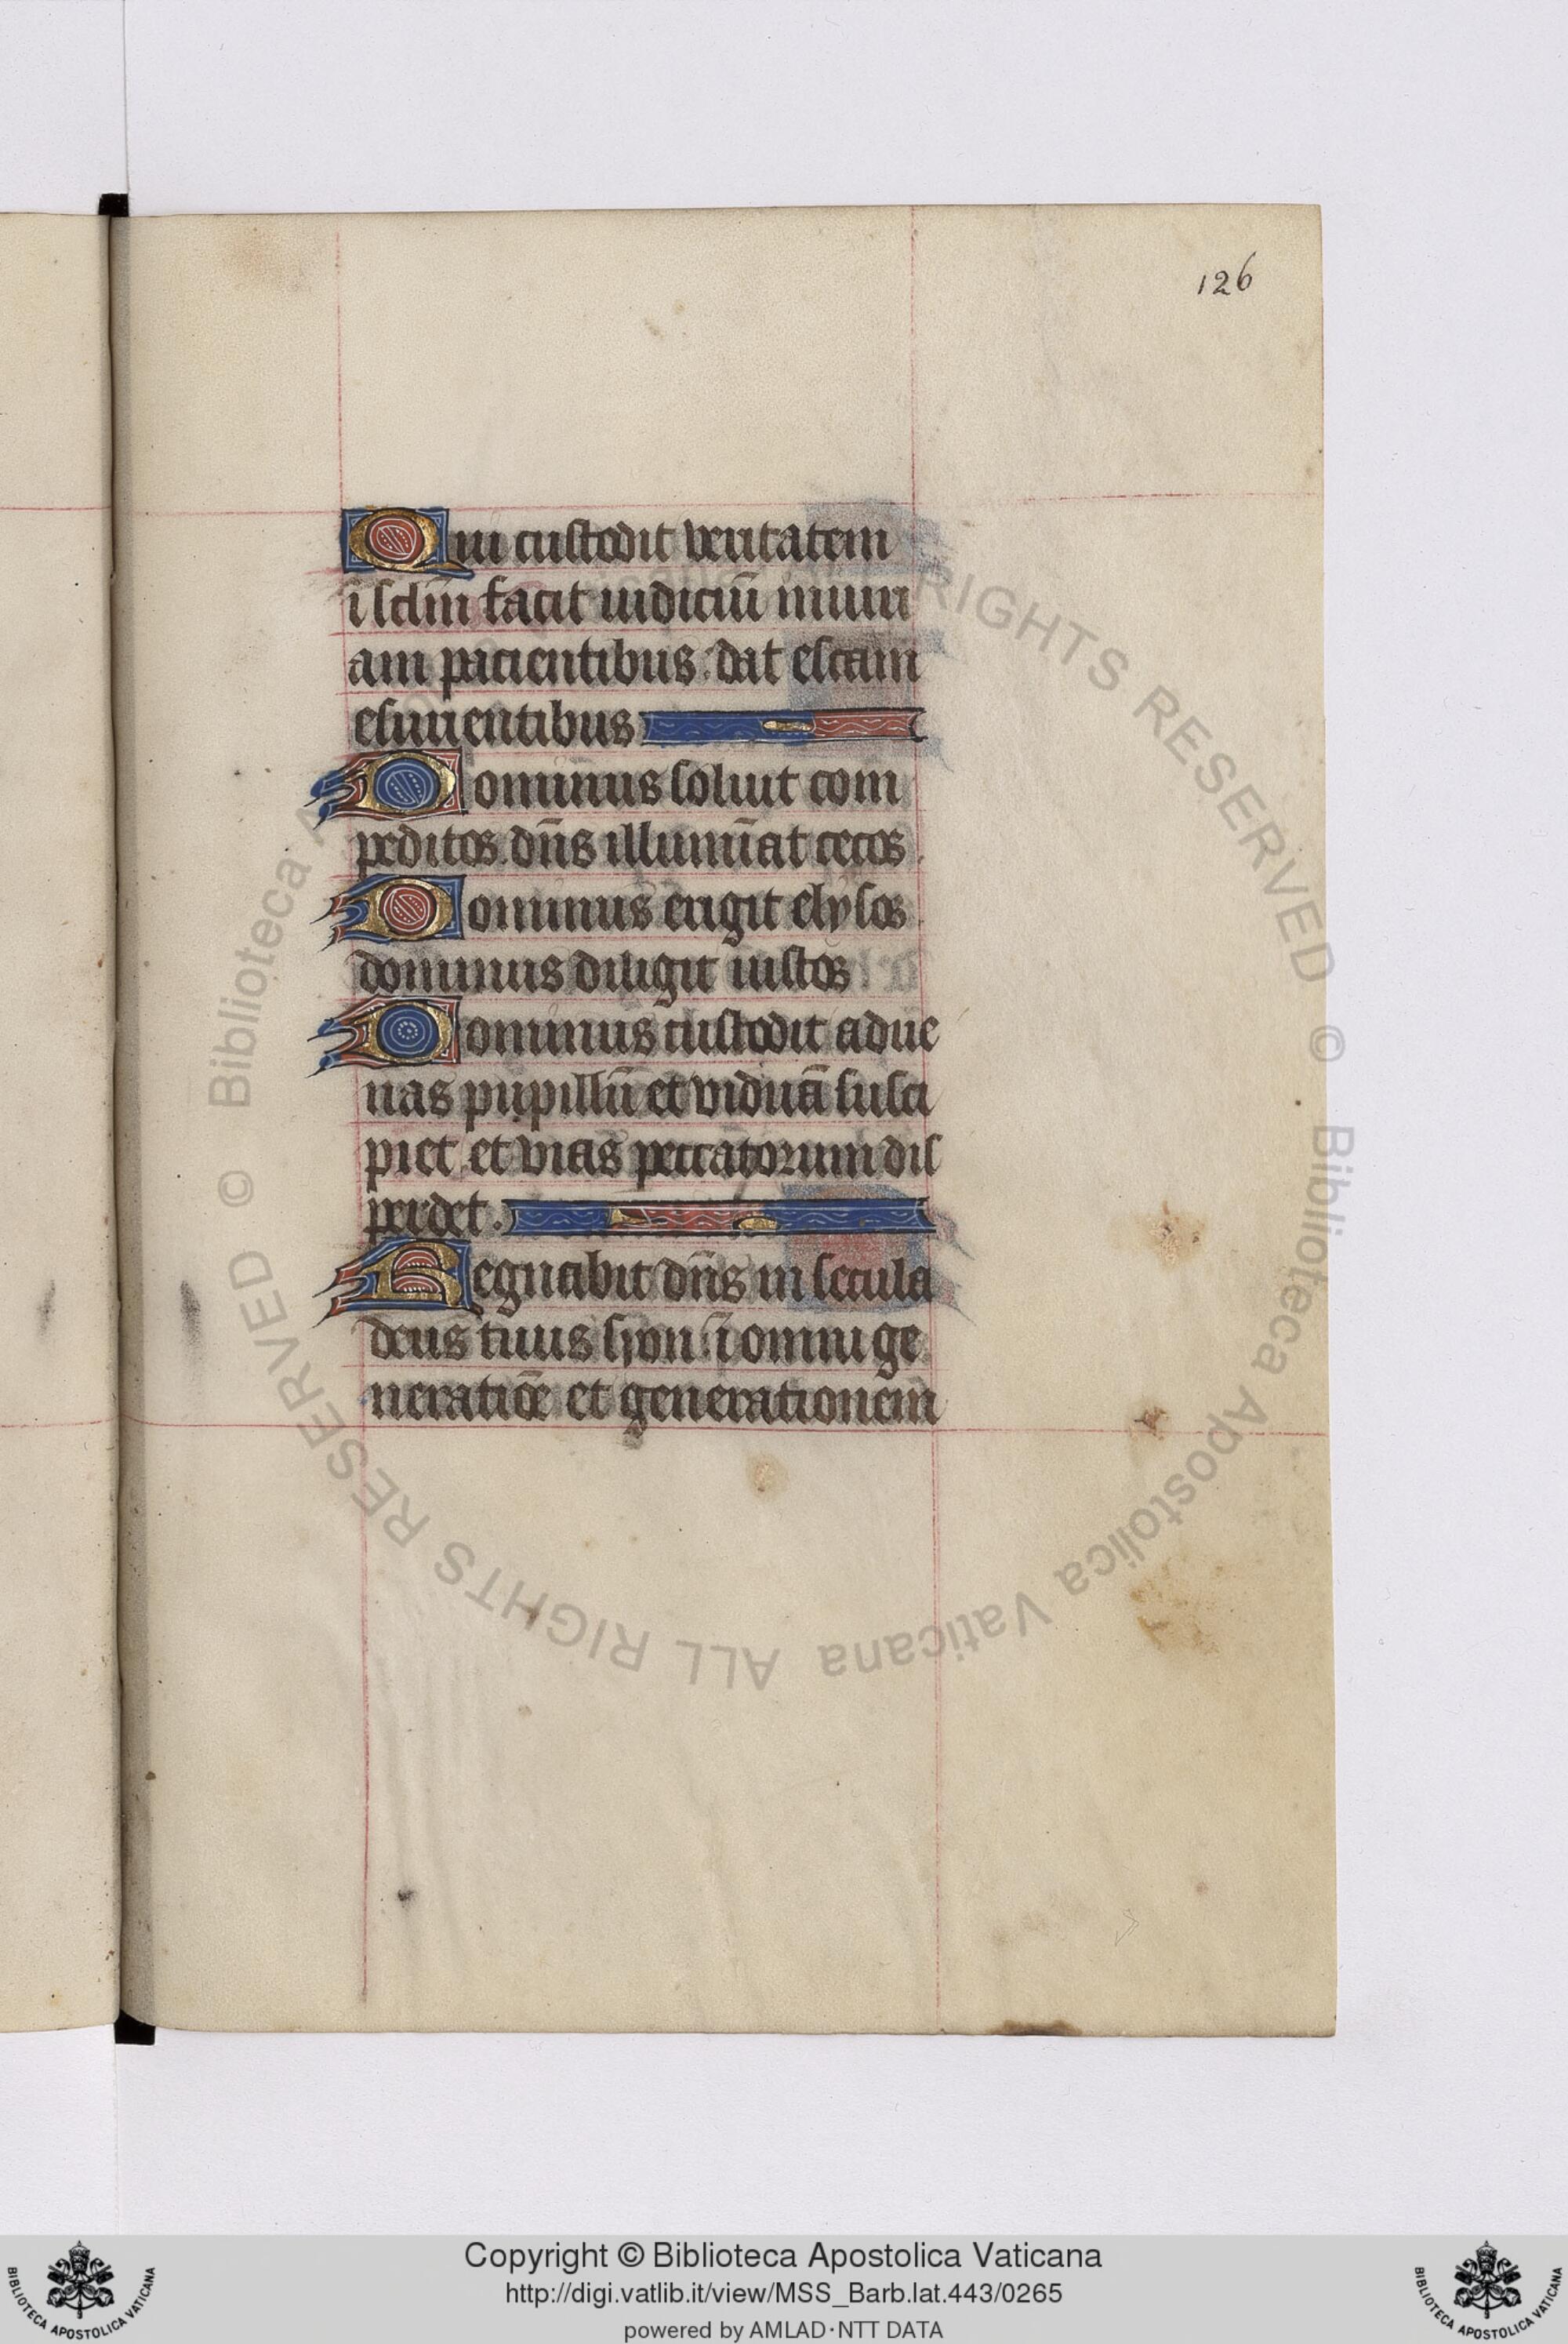 126
Qui custodit veritatem
ī sclm̄ facit iudiciū iniuri
am pacientibus : dat escam
esurientibus
Dominus soluit com
peditos. dn̄s illumīat cecos
Dominus erigit elysos
dominus diligit iustos
Dominus custodit adue
nas pupillū et viduā susci
piet et vias peccatorum dis
perdet.
Regnabit dn̄s in secula
deus tuus syon : ī omni ge
neratiōe et generationem
© Biblioteca Apostolica Vaticana ALL RIGHTS RESERVED
© Biblioteca Apostolica Vaticana ALL RIGHTS RESERVED
BIBLIOTECA APOSTOLICA VATICANA
Copyright © Biblioteca Apostolica Vaticana
http://digi.vatlib.it/view/MSS_Barb.lat.443/0265
powered by AMLAD·NTT DATA
BIBLIOTECA APOSTOLICA VATICANA